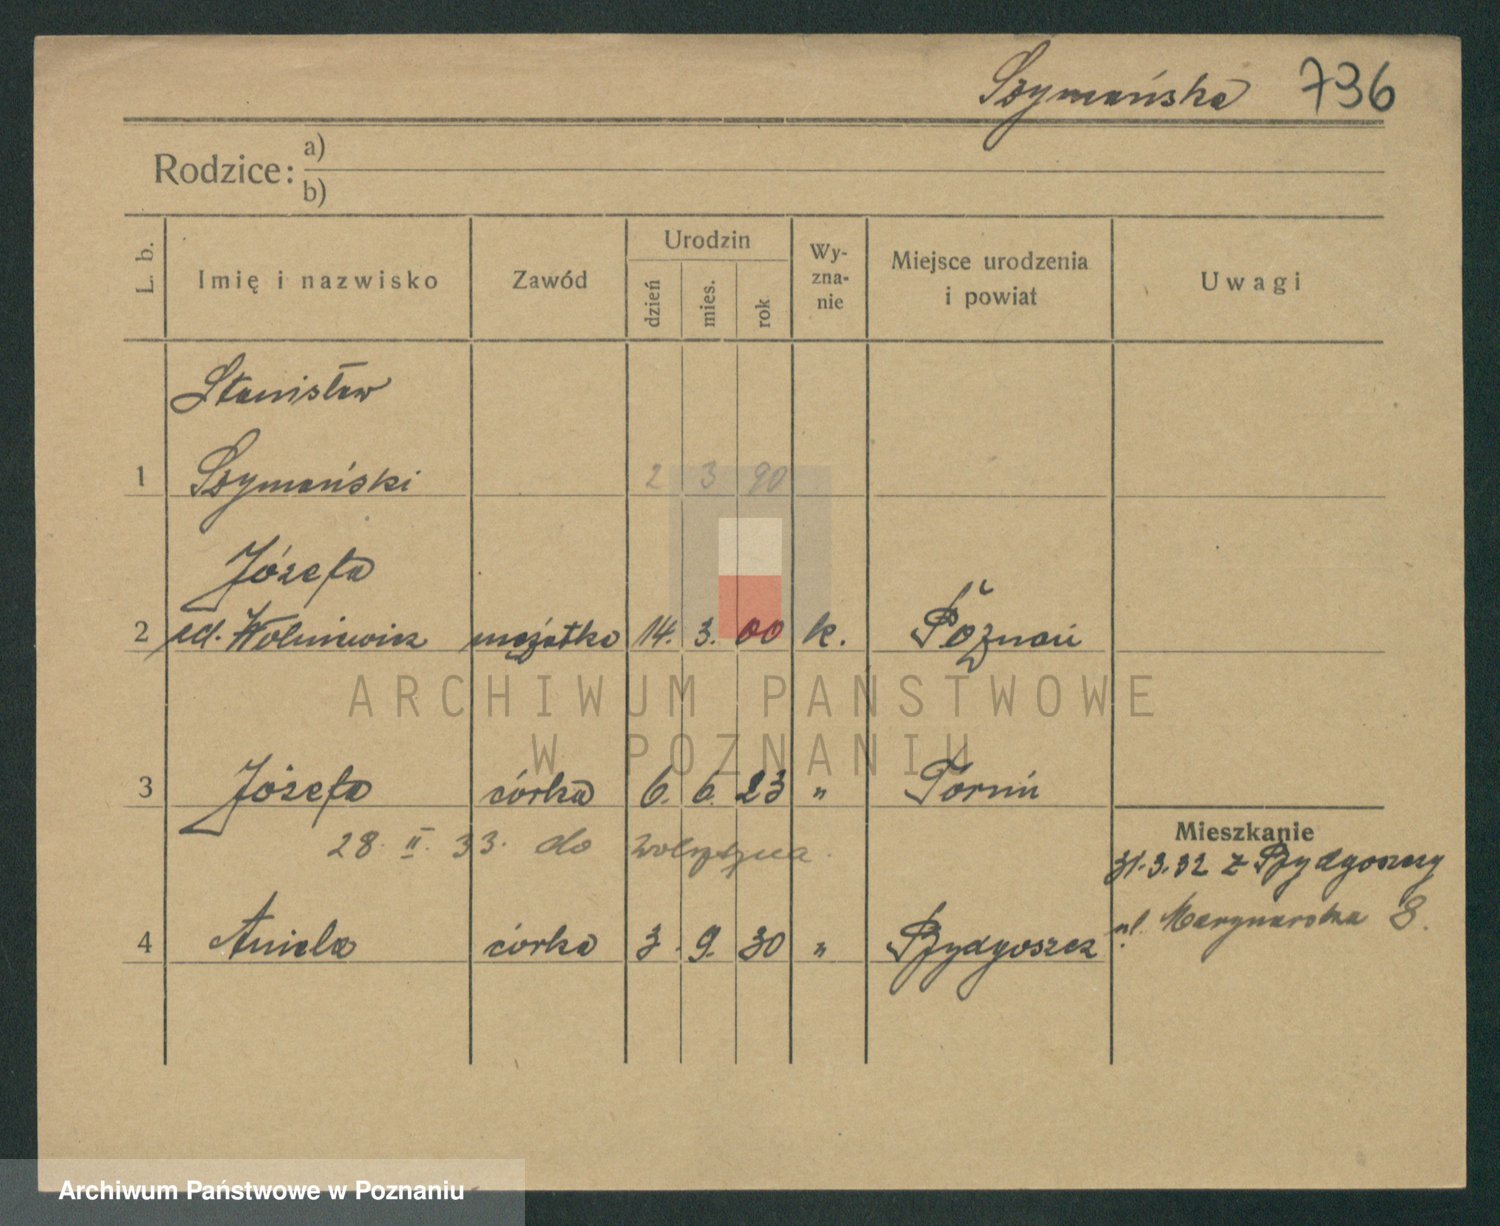 Szymańska 736
Rodzice: a)
b)
L. b. Imię i nazwisko Zawód Urodzin dzień mies. rok Wy-zna-nie Miejsce urodzenia i powiat Uwagi
Stanisław
1 Szymański 2 3 90
Józefa
2 zd. Wolniewicz mężatka 14. 3. 00 k. Poznań
ARCHIWUM PAŃSTWOWE
W POZNANIU
3 Józefa córka 6. 6. 23 " Toruń
Mieszkanie
28. II. 33. do Wolsztyna.
31.3.32 z Bydgoszczy
ul. Marynarska 8.
4 Aniela córka 3. 9. 30 " Bydgoszcz
Archiwum Państwowe w Poznaniu